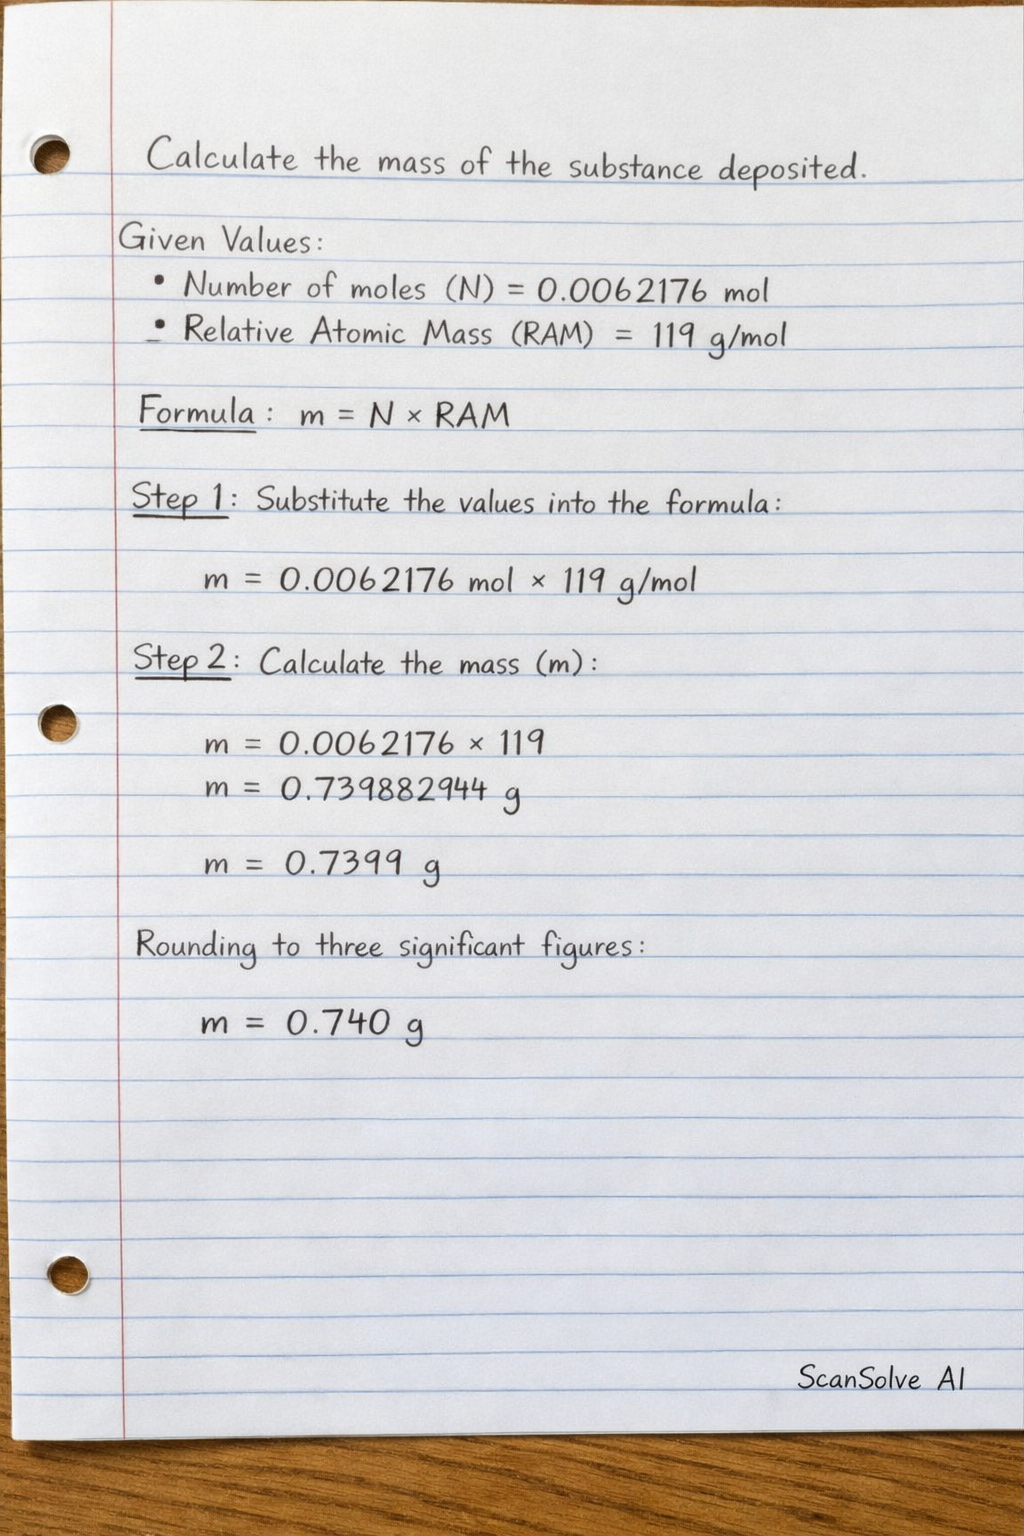 Calculate the mass of the substance deposited.
Given Values:
• Number of moles (N) = 0.0062176 mol
• Relative Atomic Mass (RAM) = 119 g/mol
Formula: m = N × RAM
Step 1: Substitute the values into the formula:
m = 0.0062176 mol × 119 g/mol
Step 2: Calculate the mass (m):
m = 0.0062176 × 119
m = 0.739882944 g
m = 0.7399 g
Rounding to three significant figures:
m = 0.740 g
ScanSolve AI